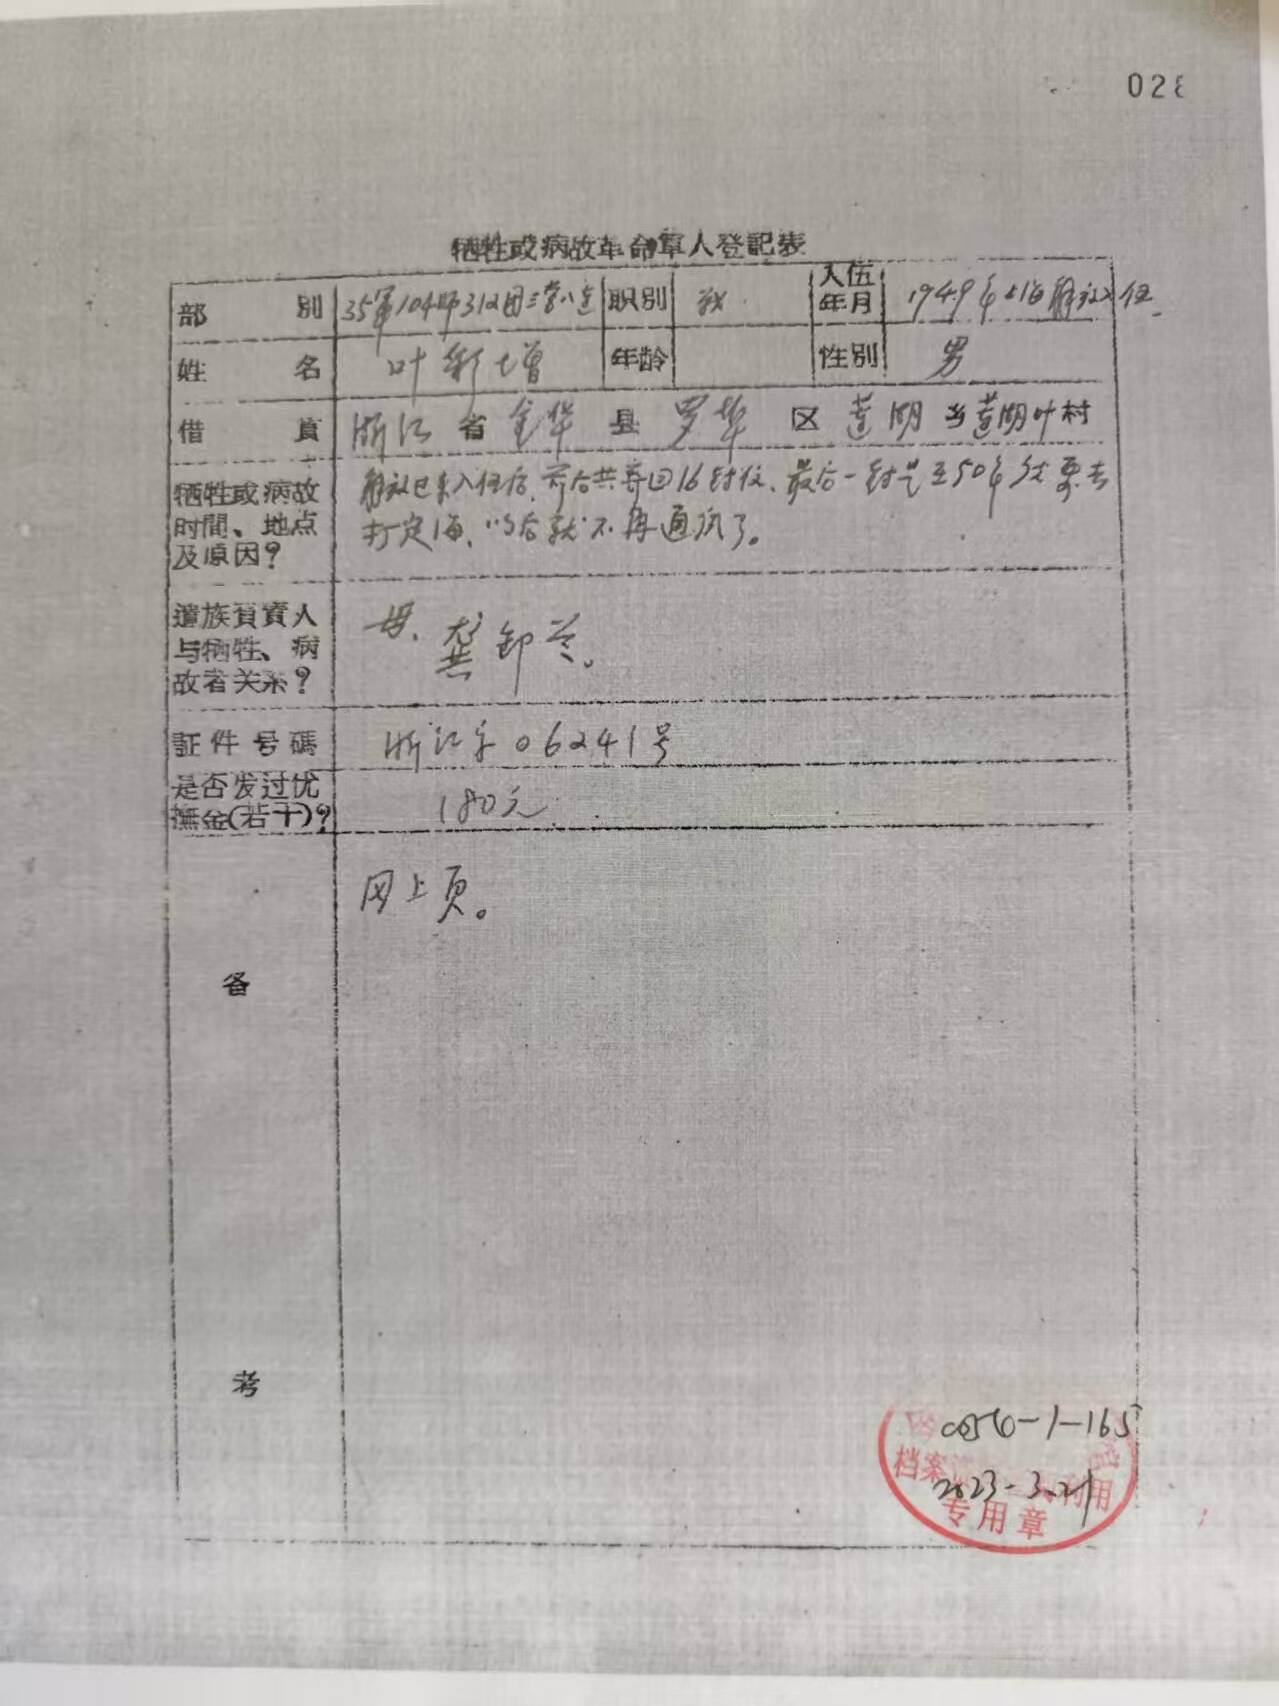 028
牺牲或病故革命軍人登記表
部 別 35军104师312团三营八连 职別 战 入伍年月 1949年上海解放入伍.
姓 名 叶新增 年龄 性別 男
借 貫 浙江 省 金华 县 罗华 区 莲湖 乡 莲湖叶村
牺牲或病故 解放已来入伍后、前后共寄回16封信、最后一封是在50年 要去
时間、地点 打定海、以后就不再通讯了。
及原因?
遺族負責人 母、龚卸兰。
与牺牲、病
故者关系?
証件号碼 浙江字06241号
是否发过优 180元
撫金(若干)?
备 同上页。
考
0056-1-165
档案 利用
2023-3.21
专用章